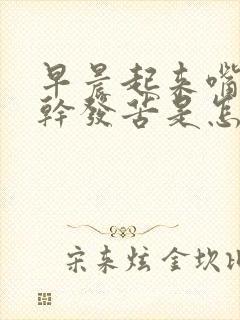 早晨起来嘴
幹發苦是怎
宋来炫金坎比